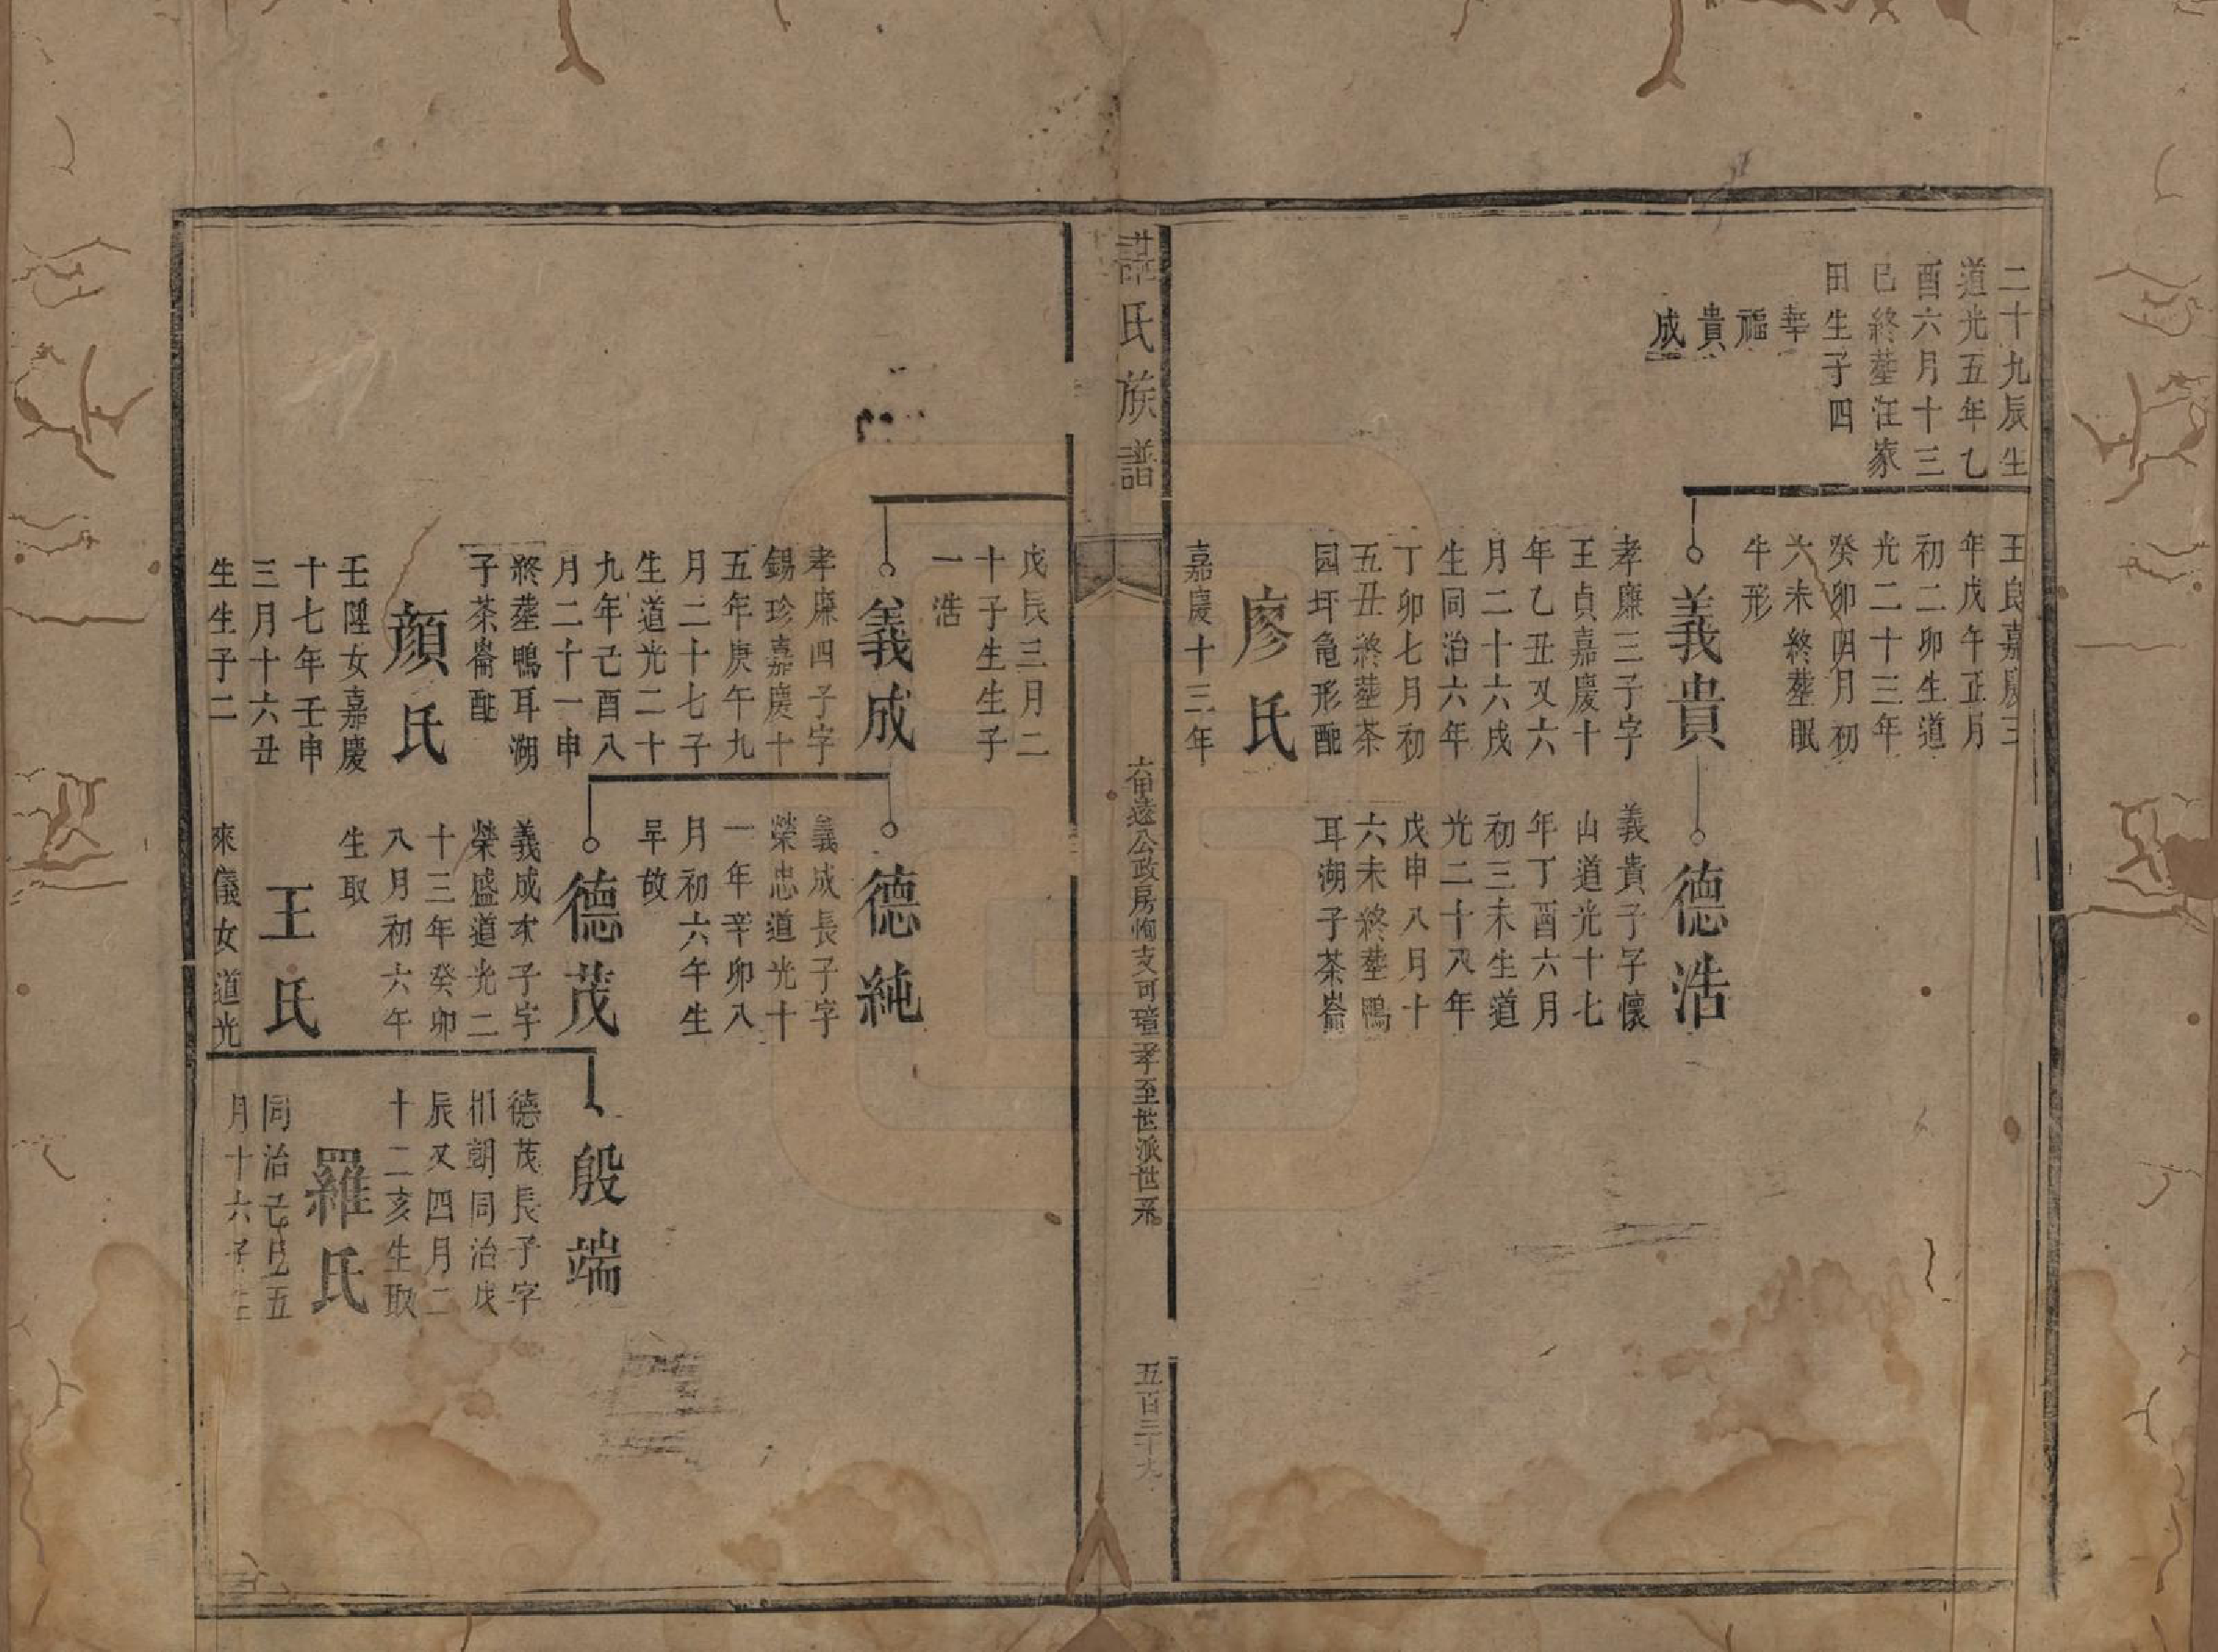 二十九辰生
道光五年乙
酉六月十三
巳終塟汪家
田生子四
華
福
貴
成
王良嘉慶三
年戊午正月
初二卯生道
光二十三年
癸卯閏月初
六未終塟眠
牛形
義貴
孝廉三子字
王貞嘉慶十
年乙丑又六
月二十六戌
生同治六年
丁卯七月初
五丑終塟茶
园坪龟形配
廖氏
嘉慶十三年
德浩
義貴子字懷
山道光十七
年丁酉六月
初三未生道
光二十八年
戊申八月十
六未終塟鴨
耳湖子茶崙
譚氏族譜
公政房恂支可瑄孝至世派世系
五百三十九
戊辰三月二
十子生生子
一浩
義成
孝廉四子字
錫珍嘉慶十
五年庚午九
月二十七子
生道光二十
九年己酉八
月二十一申
終塟鴨耳湖
子茶崙配
顏氏
壬陞女嘉慶
十七年壬申
三月十六丑
生生子二
德純
義成長子字
榮忠道光十
一年辛卯八
月初六午生
早故
德茂
義成次子字
榮盛道光二
十三年癸卯
八月初六午
生取
王氏
來儀女道光
殷端
德茂長子字
相朝同治戊
辰又四月二
十二亥生取
羅氏
同治己巳五
月十六子生